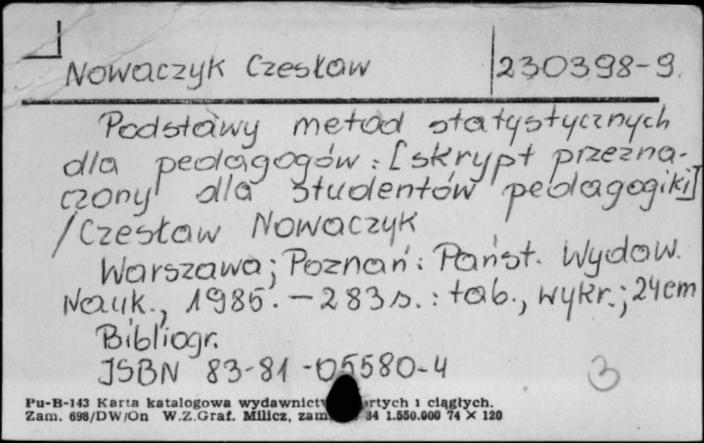 Nowaczyk Czesław 230398-9.
Podstawy metod statystycznych
dla pedagogów : [skrypt przezna-
czony dla studentów pedagogiki]
/ Czesław Nowaczyk
Warszawa ; Poznań : Państ. Wydaw.
Nauk., 1985. - 283 s. : tab., wykr. ; 24 cm
Bibliogr.
ISBN 83-81-05580-4
3
Pu-B-143 Karta katalogowa wydawnictw rtych i ciągłych.
Zam. 698/DW/On W.Z.Graf. Milicz, zam. 34 1.550.000 74 × 120